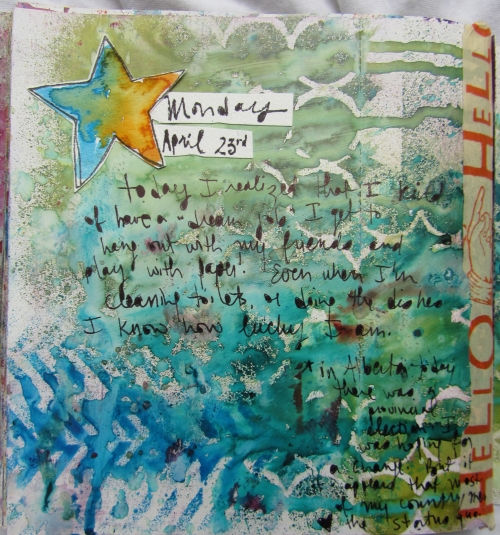 Monday
April 23rd
today I realized that I kind
of have a "dream job" I get to
hang out with my friends and
play with paper. Even when I'm
cleaning toilets or doing the dishes
I know how lucky I am.
in Alberta today
there was a
provincial
election I
was hoping for
a change. But it
appears that most
of my country men
the status quo.
HELLO HELLO